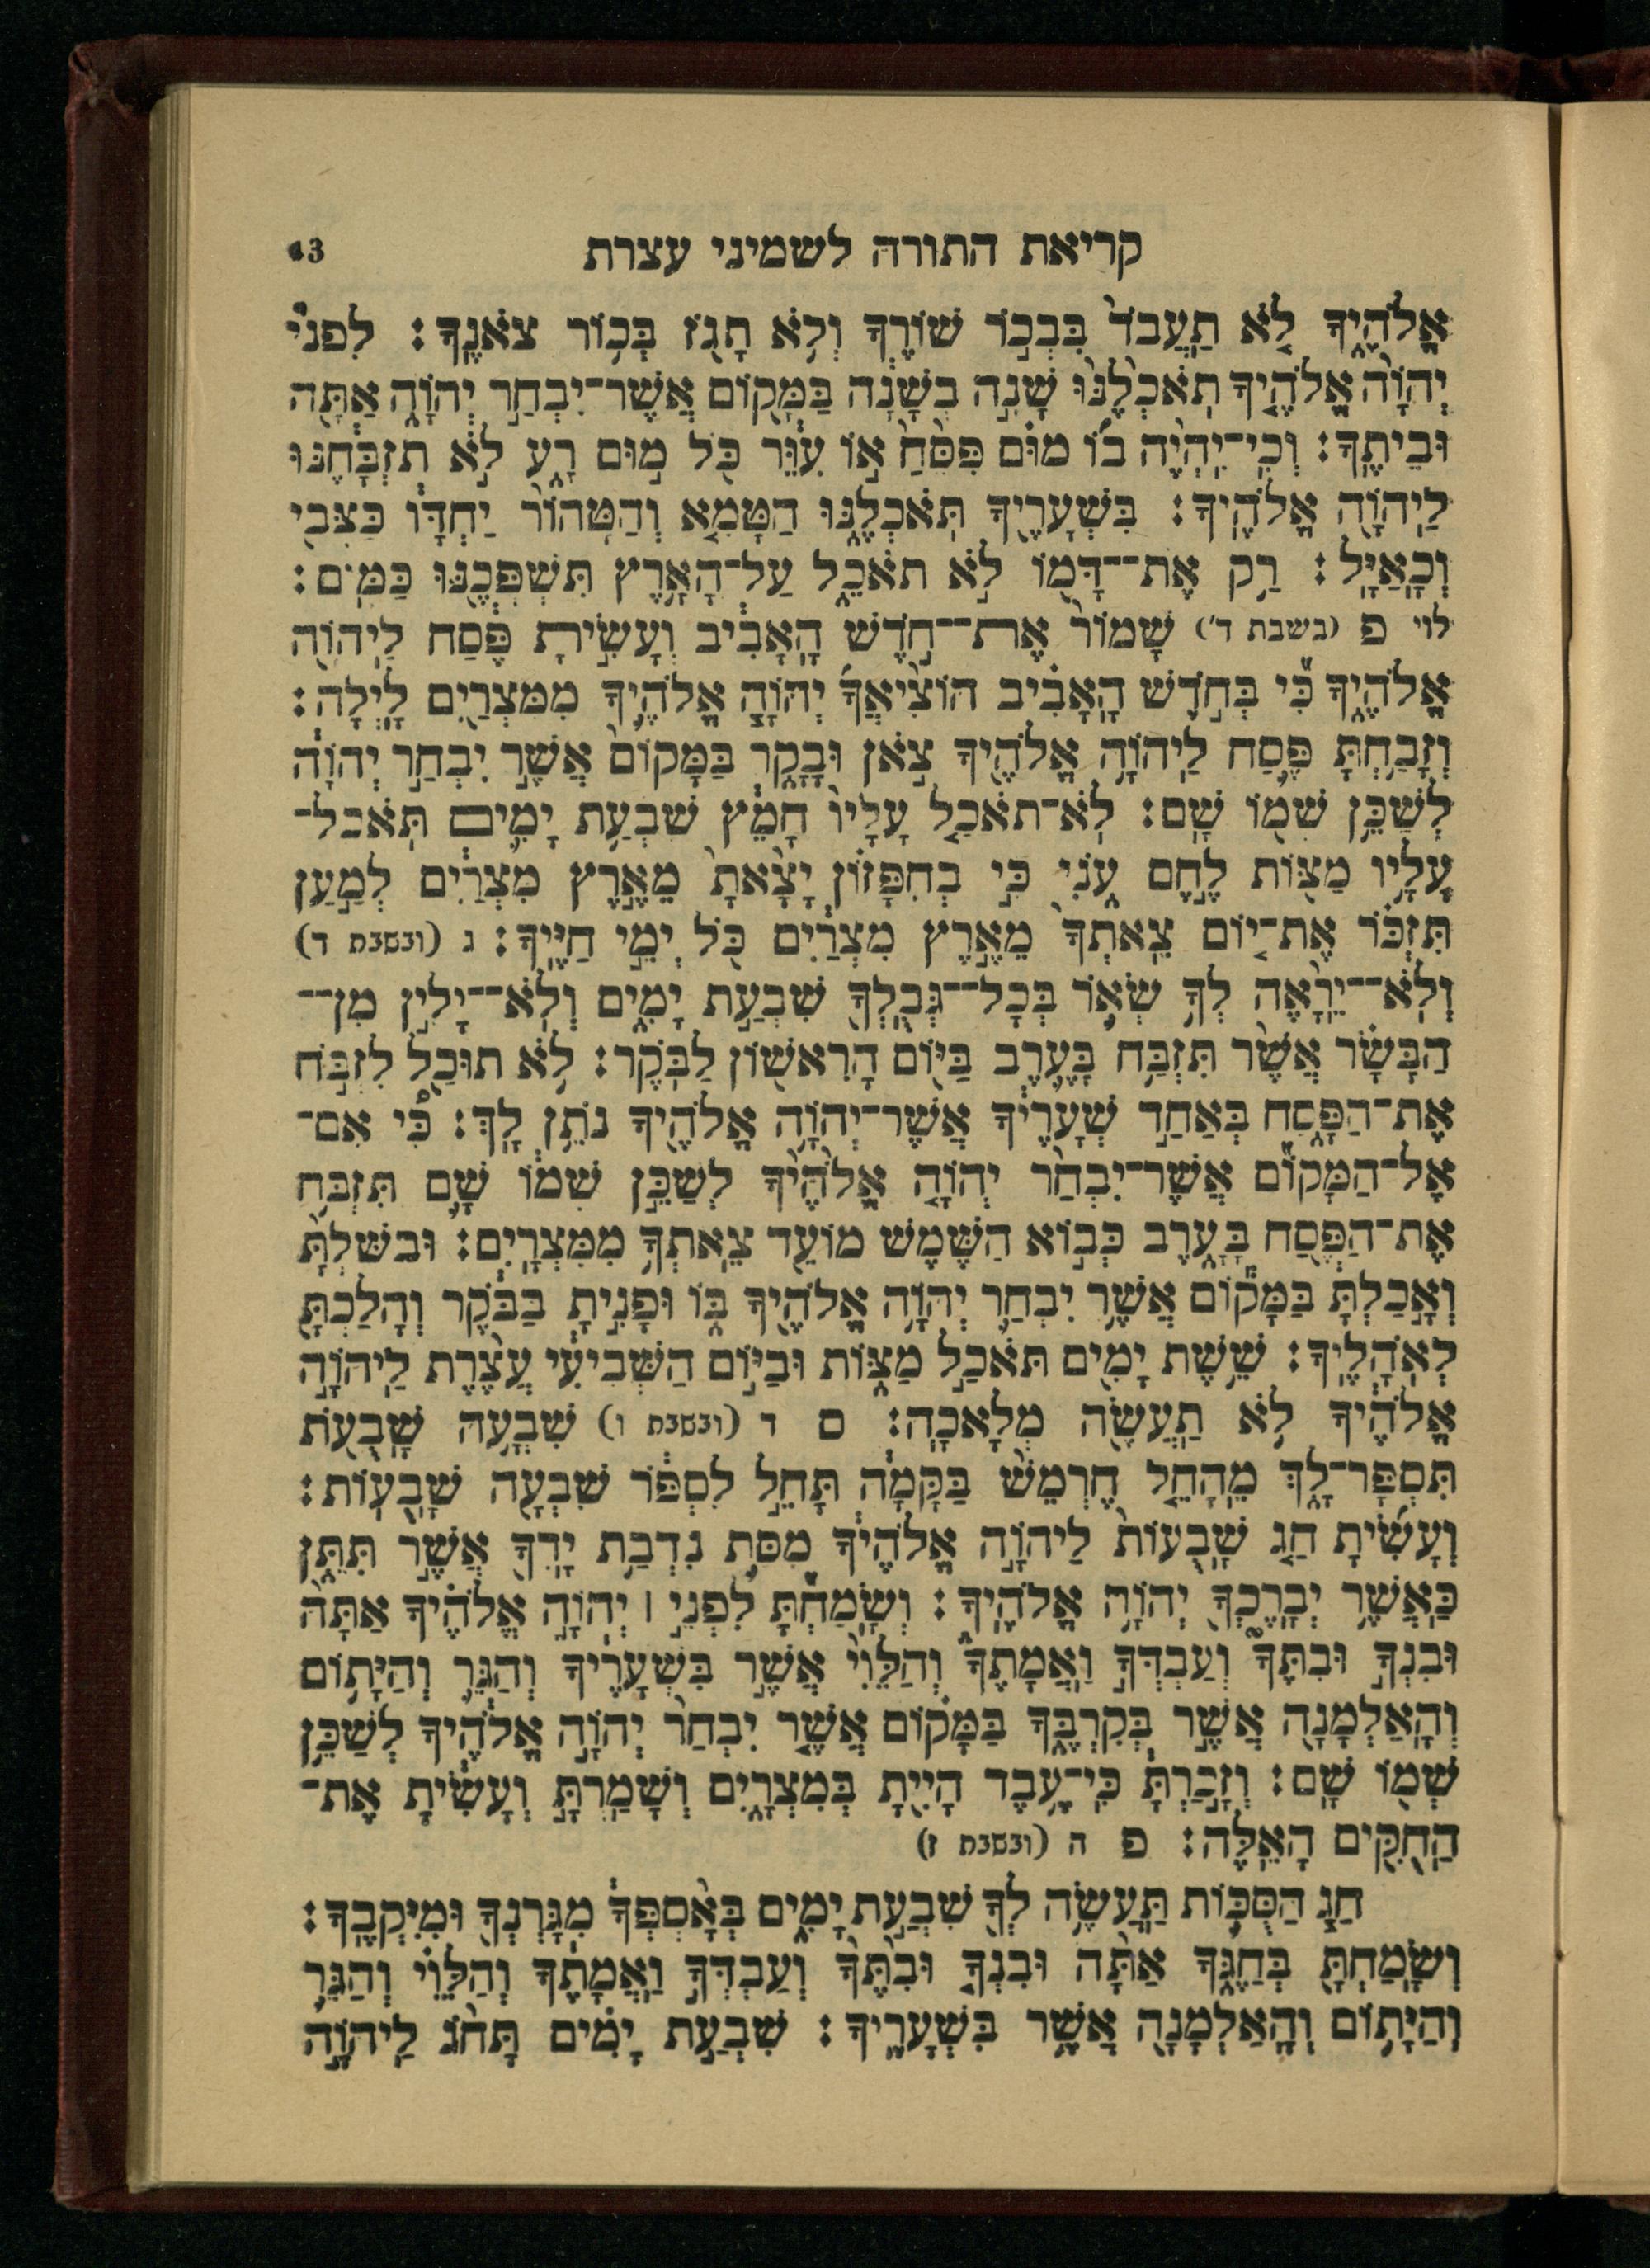 קריאת התורה לשמיני עצרת 43
אֱלֹהֶ֑יךָ לֹ֤א תַֽעֲבֹד֙ בִּבְכֹ֣ר שׁוֹרֶ֔ךָ וְלֹ֥א תָגֹ֖ז בְּכ֥וֹר צֹאנֶֽךָ׃ לִפְנֵי֩
יְהוָ֨ה אֱלֹהֶ֤יךָ תֹֽאכְלֶ֨נּוּ֙ שָׁנָ֣ה בְשָׁנָ֔ה בַּמָּק֖וֹם אֲשֶׁר־יִבְחַ֣ר יְהוָ֑ה אַתָּ֖ה
וּבֵיתֶֽךָ׃ וְכִֽי־יִֽהְיֶ֨ה ב֜וֹ מ֗וּם פִּסֵּ֨חַ֙ א֣וֹ עִוֵּ֔ר כֹּ֖ל מ֣וּם רָ֑ע לֹ֣א תִזְבָּחֶ֔נּוּ
לַֽיהוָ֖ה אֱלֹהֶֽיךָ׃ בִּשְׁעָרֶ֖יךָ תֹּֽאכְלֶ֑נּוּ הַטָּמֵ֤א וְהַטָּהוֹר֙ יַחְדָּ֔ו כַּצְּבִ֖י
וְכָֽאַיָּֽל׃ רַ֥ק אֶת־־דָּמ֖וֹ לֹ֣א תֹאכֵ֑ל עַל־הָאָ֥רֶץ תִּשְׁפְּכֶ֖נּוּ כַּמָּֽיִם׃
לוי פ (בשבת ד׳) שָׁמוֹר֙ אֶת־־חֹ֣דֶשׁ הָֽאָבִ֔יב וְעָשִׂ֣יתָ פֶּ֔סַח לַֽיהוָ֖ה
אֱלֹהֶ֑יךָ כִּ֞י בְּחֹ֣דֶשׁ הָֽאָבִ֗יב הוֹצִ֨יאֲךָ֜ יְהוָ֧ה אֱלֹהֶ֛יךָ מִמִּצְרַ֖יִם לָֽיְלָה׃
וְזָבַ֥חְתָּ פֶּ֛סַח לַֽיהוָ֥ה אֱלֹהֶ֖יךָ צֹ֣אן וּבָקָ֑ר בַּמָּקוֹם֙ אֲשֶׁ֣ר יִבְחַ֣ר יְהוָ֔ה
לְשַׁכֵּ֥ן שְׁמ֖וֹ שָֽׁם׃ לֹֽא־תֹאכַ֤ל עָלָיו֙ חָמֵ֔ץ שִׁבְעַ֥ת יָמִ֛ים תֹּֽאכַל־
עָלָ֥יו מַצּ֖וֹת לֶ֣חֶם עֹ֑נִי כִּ֣י בְחִפָּז֗וֹן יָצָ֨אתָ֙ מֵאֶ֣רֶץ מִצְרַ֔יִם לְמַ֣עַן
תִּזְכֹּ֗ר אֶת־י֤וֹם צֵֽאתְךָ֙ מֵאֶ֣רֶץ מִצְרַ֔יִם כֹּ֖ל יְמֵ֥י חַיֶּֽיךָ׃ ג (ובשבת ד)
וְלֹֽא־־יֵֽרָאֶ֨ה לְךָ֥ שְׂאֹ֛ר בְּכָל־־גְּבֻֽלְךָ֖ שִׁבְעַ֣ת יָמִ֑ים וְלֹֽא־־יָלִ֣ין מִן־־
הַבָּשָׂ֗ר אֲשֶׁ֨ר תִּזְבַּ֥ח בָּעֶ֛רֶב בַּיּ֥וֹם הָרִאשׁ֖וֹן לַבֹּֽקֶר׃ לֹ֥א תוּכַ֖ל לִזְבֹּ֣חַ
אֶת־הַפָּ֑סַח בְּאַחַ֣ד שְׁעָרֶ֔יךָ אֲשֶׁר־יְהוָ֥ה אֱלֹהֶ֖יךָ נֹתֵ֥ן לָֽךְ׃ כִּ֠י אִֽם־
אֶל־הַמָּק֞וֹם אֲשֶׁר־יִבְחַ֨ר יְהוָ֤ה אֱלֹהֶ֨יךָ֙ לְשַׁכֵּ֣ן שְׁמ֔וֹ שָׁ֛ם תִּזְבַּ֥ח
אֶת־הַפֶּ֖סַח בָּעָ֑רֶב כְּב֣וֹא הַשֶּׁ֔מֶשׁ מוֹעֵ֖ד צֵֽאתְךָ֥ מִמִּצְרָֽיִם׃ וּבִשַּׁלְתָּ֙
וְאָ֣כַלְתָּ֔ בַּמָּק֕וֹם אֲשֶׁ֥ר יִבְחַ֛ר יְהוָ֥ה אֱלֹהֶ֖יךָ בּ֑וֹ וּפָנִ֣יתָ בַבֹּ֔קֶר וְהָֽלַכְתָּ֖
לְאֹֽהָלֶֽיךָ׃ שֵׁ֥שֶׁת יָמִ֖ים תֹּאכַ֣ל מַצּ֑וֹת וּבַיּ֣וֹם הַשְּׁבִיעִ֗י עֲצֶ֨רֶת֙ לַֽיהוָ֣ה
אֱלֹהֶ֔יךָ לֹ֥א תַֽעֲשֶׂ֖ה מְלָאכָֽה׃ ס ד (ובשבת ו) שִׁבְעָ֥ה שָֽׁבֻעֹ֖ת
תִּסְפָּר־לָ֑ךְ מֵֽהָחֵ֤ל חֶרְמֵשׁ֙ בַּקָּמָ֔ה תָּחֵ֣ל לִסְפֹּ֔ר שִׁבְעָ֖ה שָֽׁבֻעֽוֹת׃
וְעָשִׂ֜יתָ חַ֤ג שָֽׁבֻעוֹת֙ לַֽיהוָ֣ה אֱלֹהֶ֔יךָ מִסַּ֛ת נִדְבַ֥ת יָֽדְךָ֖ אֲשֶׁ֣ר תִּתֵּ֑ן
כַּֽאֲשֶׁ֥ר יְבָרֶכְךָ֖ יְהוָ֥ה אֱלֹהֶֽיךָ׃ וְשָֽׂמַחְתָּ֞ לִפְנֵ֣י ׀ יְהוָ֣ה אֱלֹהֶ֗יךָ אַתָּ֨ה
וּבִנְךָ֣ וּבִתֶּךָ֮ וְעַבְדְּךָ֣ וַֽאֲמָתֶךָ֒ וְהַלֵּוִי֙ אֲשֶׁ֣ר בִּשְׁעָרֶ֔יךָ וְהַגֵּ֛ר וְהַיָּת֥וֹם
וְהָֽאַלְמָנָ֖ה אֲשֶׁ֣ר בְּקִרְבֶּ֑ךָ בַּמָּק֗וֹם אֲשֶׁ֤ר יִבְחַר֙ יְהוָ֣ה אֱלֹהֶ֔יךָ לְשַׁכֵּ֥ן
שְׁמ֖וֹ שָֽׁם׃ וְזָ֣כַרְתָּ֔ כִּי־עֶ֥בֶד הָיִ֖יתָ בְּמִצְרָ֑יִם וְשָֽׁמַרְתָּ֣ וְעָשִׂ֔יתָ אֶת־
הַֽחֻקִּ֖ים הָאֵֽלֶּה׃ פ ה (ובשבת ז)
חַ֧ג הַסֻּכֹּ֛ת תַּֽעֲשֶׂ֥ה לְךָ֖ שִׁבְעַ֣ת יָמִ֑ים בְּאָ֨סְפְּךָ֔ מִֽגָּרְנְךָ֖ וּמִיִּקְבֶֽךָ׃
וְשָֽׂמַחְתָּ֖ בְּחַגֶּ֑ךָ אַתָּ֨ה וּבִנְךָ֤ וּבִתֶּ֨ךָ֙ וְעַבְדְּךָ֣ וַֽאֲמָתֶ֔ךָ וְהַלֵּוִ֗י וְהַגֵּ֛ר
וְהַיָּת֥וֹם וְהָֽאַלְמָנָ֖ה אֲשֶׁ֥ר בִּשְׁעָרֶֽיךָ׃ שִׁבְעַ֣ת יָמִ֗ים תָּחֹג֙ לַֽיהוָ֣ה